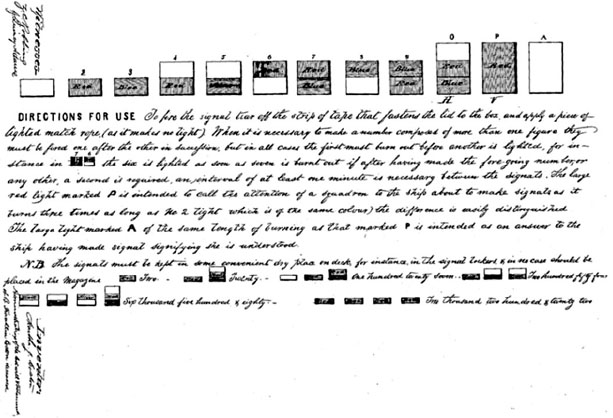 Witnesses
1 2 3 4 5 6 7 8 9 0 P A
Red Blue Red Blue Red Red Blue Blue Blue Red Red Blue
H V
DIRECTIONS FOR USE To fire the signal tear off the strip of tape that fastens the lid to the box, and apply a piece of
lighted match rope, (as it makes no light) When it is necessary to make a number composed of more than one figure they
must be fired one after the other in succession, but in all cases the first must burn out before another is lighted, for in-
stance in 76 the six is lighted as soon as seven is burnt out if after having made the fore-going number, or
any other, a second is required, an interval of at least one minute is necessary between the signals. The large
red light marked P is intended to call the attention of a squadron to the ship about to make signals as it
burns three times as long as No 2 light which is of the same colour) the difference is easily distinguished
The large light marked A of the same length of burning as that marked P is intended as an answer to the
ship having made signal signifying she is understood.
N.B The signals must be kept in some convenient dry place on deck, for instance, in the signal lockers & in no case should be
placed in the Magazine Two - Twenty - One hundred twenty seven Two hundred fifty four
Six thousand five hundred & eighty - Two thousand two hundred & twenty two
Inventor